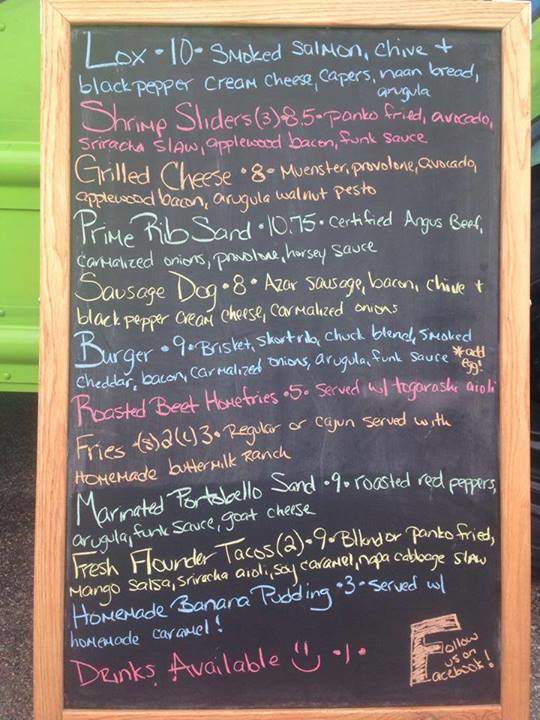 Lox • 10 • Smoked Salmon, chive +
black pepper cream cheese, capers, naan bread,
arugula
Shrimp Sliders (3) • 8.5 • panko fried, avocado,
sriracha slaw, applewood bacon, funk sauce
Grilled Cheese • 8 • Muenster, provolone, avocado,
applewood bacon, arugula walnut pesto
Prime Rib Sand • 10.75 • Certified Angus Beef,
carmalized onions, provolone, horsey sauce
Sausage Dog • 8 • Azar Sausage, bacon, chive +
black pepper cream cheese, carmalized onions
Burger • 9 • Brisket, short rib, chuck blend, smoked
cheddar, bacon, carmalized onions, arugula, funk sauce *add
egg!
Roasted Beet Homefries • 5 • served w/ togarashi aioli
Fries (s) 2 (L) 3 • Regular or cajun served with
Homemade buttermilk Ranch
Marinated Portobello Sand • 9 • roasted red peppers,
arugula, funk sauce, goat cheese
Fresh Flounder Tacos (2) • 9 • Blknd or Panko fried,
Mango Salsa, sriracha aioli, soy caramel, napa cabbage slaw
Homemade Banana Pudding • 3 • served w/
homemade caramel!
Drinks Available • 1 •
Follow
us on
Facebook!